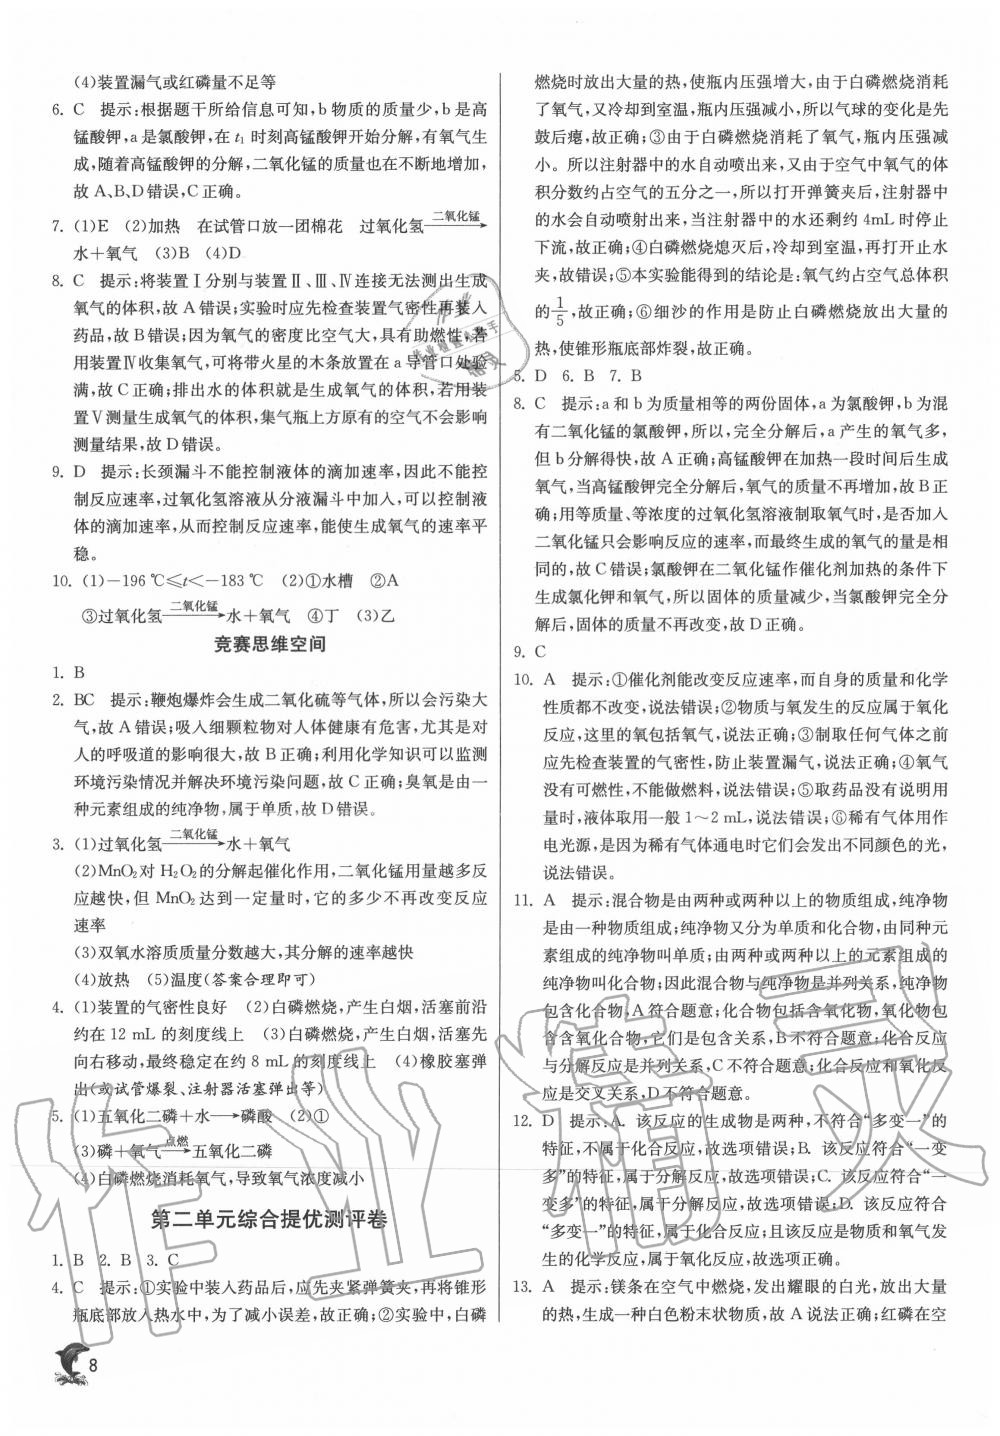 (4)装置漏气或红磷量不足等
6. C 提示:根据题干所给信息可知,b物质的质量少,b是高
锰酸钾,a是氯酸钾,在t₁时刻高锰酸钾开始分解,有氧气生
成,随着高锰酸钾的分解,二氧化锰的质量也在不断地增加,
故A、B、D错误,C正确。
7. (1)E (2)加热 在试管口放一团棉花 过氧化氢 二氧化锰→
水+氧气 (3)B (4)D
8. C 提示:将装置Ⅰ分别与装置Ⅱ、Ⅲ、Ⅳ连接无法测出生成
氧气的体积,故A错误;实验时应先检查装置气密性再装入
药品,故B错误;因为氧气的密度比空气大,具有助燃性,若
用装置Ⅳ收集氧气,可将带火星的木条放在a导管口处验
满,故C正确;排出水的体积就是生成氧气的体积,若用装
置Ⅴ测量生成氧气的体积,集气瓶上方原有的空气不会影响
测量结果,故D错误。
9. D 提示:长颈漏斗不能控制液体的滴加速率,因此不能控
制反应速率,过氧化氢溶液从分液漏斗中加入,可以控制液
体的滴加速率,从而控制反应速率,能使生成氧气的速率平
稳。
10. (1)-196 ℃≤t<-183 ℃ (2)①水槽 ②A
③过氧化氢 二氧化锰→ 水+氧气 ④丁 (3)乙
竞赛思维空间
1. B
2. BC 提示:鞭炮爆炸会生成二氧化硫等气体,所以会污染大
气,故A错误;吸入细颗粒物对人体健康有危害,尤其是对
人的呼吸道的影响很大,故B正确;利用化学知识可以监测
环境污染情况并解决环境污染问题,故C正确;臭氧是由一
种元素组成的纯净物,属于单质,故D错误。
3. (1)过氧化氢 二氧化锰→ 水+氧气
(2)MnO₂对H₂O₂的分解起催化作用,二氧化锰用量越多反
应越快,但MnO₂达到一定量时,它的多少不再改变反应
速率
(3)双氧水溶质质量分数越大,其分解的速率越快
(4)放热 (5)温度(答案合理即可)
4. (1)装置的气密性良好 (2)白磷燃烧,产生白烟,活塞前沿
约在12 mL的刻度线上 (3)白磷燃烧,产生白烟,活塞先
向右移动,最终稳定在约8 mL的刻度线上 (4)橡胶塞弹
出(或试管爆裂、注射器活塞弹出等)
5. (1)五氧化二磷+水→磷酸 (2)①
(3)磷+氧气 点燃→ 五氧化二磷
(4)白磷燃烧消耗氧气,导致氧气浓度减小
第二单元综合提优测评卷
1. B 2. B 3. C
4. C 提示:①实验中装入药品后,应先夹紧弹簧夹,再将锥形
瓶底部放入热水中,为了减小误差,故正确;②实验中,白磷
8
燃烧时放出大量的热,使瓶内压强增大,由于白磷燃烧消耗
了氧气,又冷却到室温,瓶内压强减小,所以气球的变化是先
鼓后瘪,故正确;③由于白磷燃烧消耗了氧气,瓶内压强减
小。所以注射器中的水自动喷出来,又由于空气中氧气的体
积分数约占空气的五分之一,所以打开弹簧夹后,注射器中
的水会自动喷射出来,当注射器中的水还剩约4mL时停止
下流,故正确;④白磷燃烧熄灭后,冷却到室温,再打开止水
夹,故错误;⑤本实验能得到的结论是:氧气约占空气总体积
的1/5,故正确;⑥细沙的作用是防止白磷燃烧放出大量的
热,使锥形瓶底部炸裂,故正确。
5. D 6. B 7. B
8. C 提示:a和b为质量相等的两份固体,a为氯酸钾,b为混
有二氧化锰的氯酸钾,所以,完全分解后,a产生的氧气多,
但b分解得快,故A正确;高锰酸钾在加热一段时间后生成
氧气,当高锰酸钾完全分解后,氧气的质量不再增加,故B正
确;用等质量、等浓度的过氧化氢溶液制取氧气时,是否加入
二氧化锰只会影响反应的速率,而最终生成的氧气的量是相
同的,故C错误;氯酸钾在二氧化锰作催化剂加热的条件下
生成氯化钾和氧气,所以固体的质量减少,当氯酸钾完全分
解后,固体的质量不再改变,故D正确。
9. C
10. A 提示:①催化剂能改变反应速率,而自身的质量和化学
性质都不改变,说法错误;②物质与氧发生的反应属于氧化
反应,这里的氧包括氧气,说法正确;③制取任何气体之前
应先检查装置的气密性,防止装置漏气,说法正确;④氧气
没有可燃性,不能做燃料,说法错误;⑤取药品没有说明用
量时,液体取用一般1～2 mL,说法错误;⑥稀有气体用作
电光源,是因为稀有气体通电时它们会发出不同颜色的光,
说法错误。
11. A 提示:混合物是由两种或两种以上的物质组成,纯净物
是由一种物质组成;纯净物又分单质和化合物;由同种元
素组成的纯净物叫单质;由两种或两种以上的元素组成的
纯净物叫化合物;因此混合物与纯净物是并列关系,纯净物
包含化合物,A符合题意;化合物包括含氧化物,氧化物包
含含氧化合物,它们是包含关系,B不符合题意;化合反应
与分解反应是并列关系,C不符合题意;化合反应和氧化反
应是交叉关系,D不符合题意。
12. D 提示:A. 该反应的生成物是两种,不符合“多变一”的
特征,不属于化合反应,故选项错误;B. 该反应符合“一变
多”的特征,属于分解反应,故选项错误;C. 该反应符合“一
变多”的特征,属于分解反应,故选项错误;D. 该反应符合
“多变一”的特征,属于化合反应;且该反应是物质和氧气发
生的化学反应,属于氧化反应,故选项正确。
13. A 提示:镁条在空气中燃烧,发出耀眼的白光,放出大量
的热,生成一种白色粉末状物质,故A说法正确;红磷在空